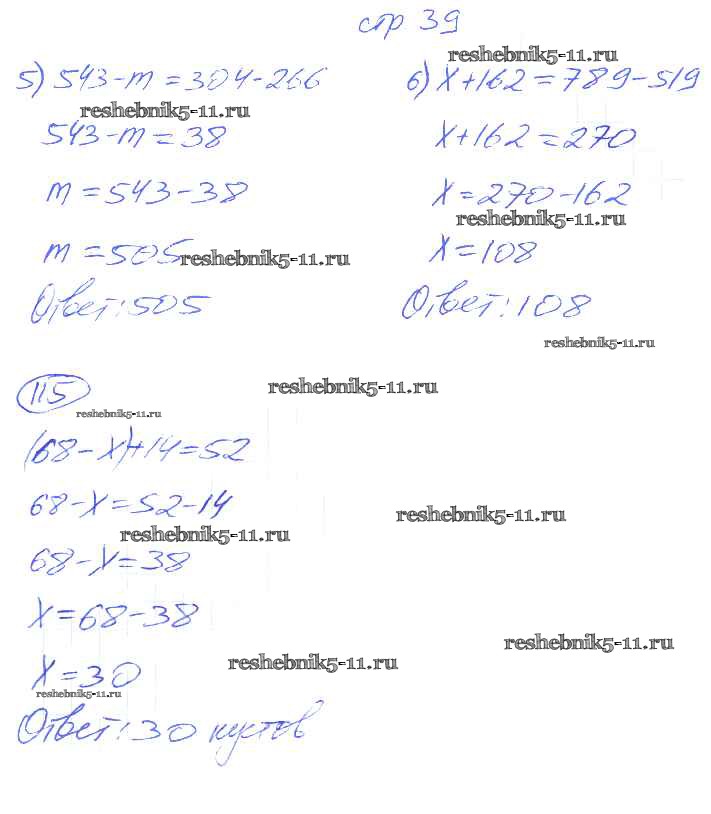 стр 39
reshebnik5-11.ru
5) 543-m=304-266
reshebnik5-11.ru
543-m=38
m=543-38
m=505
reshebnik5-11.ru
Ответ: 505
6) x+162=789-519
x+162=270
x=270-162
reshebnik5-11.ru
x=108
Ответ: 108
reshebnik5-11.ru
115
reshebnik5-11.ru
reshebnik5-11.ru
(68-x)+14=52
68-x=52-14
reshebnik5-11.ru
reshebnik5-11.ru
68-x=38
x=68-38
reshebnik5-11.ru
reshebnik5-11.ru
x=30
reshebnik5-11.ru
Ответ: 30 кустов